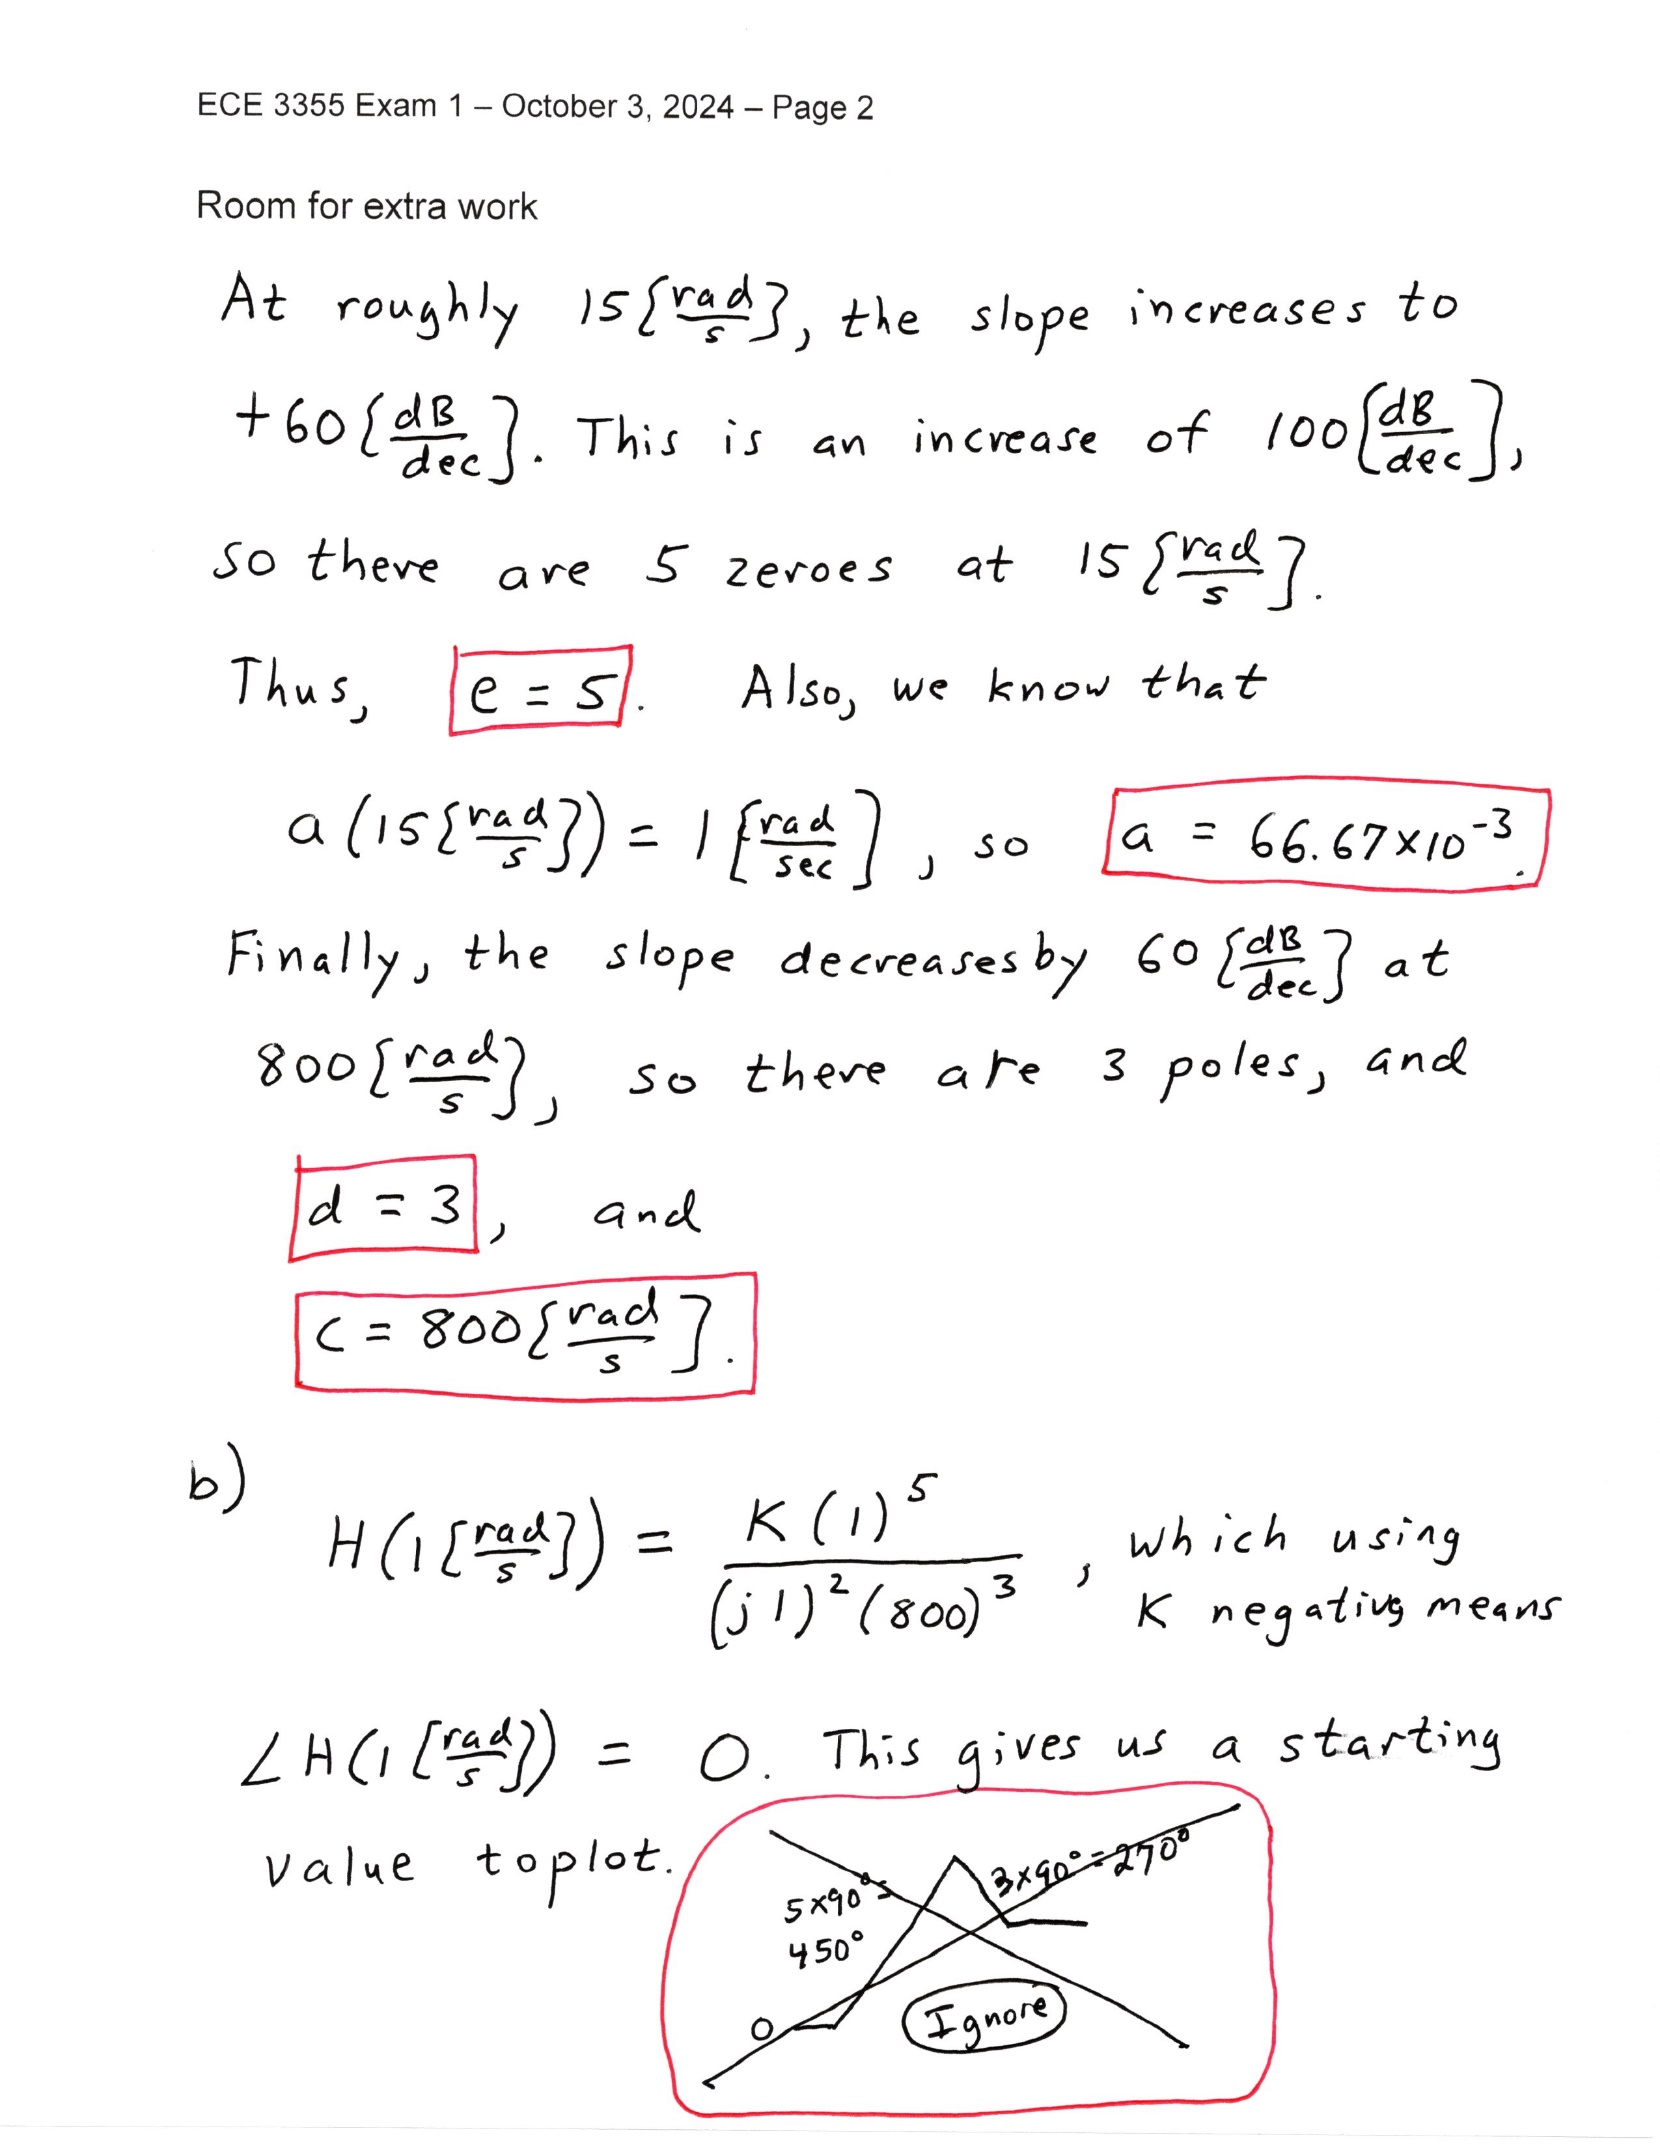 ECE 3355 Exam 1 – October 3, 2024 – Page 2
Room for extra work
At roughly 15 {rad/s}, the slope increases to
+60 {dB/dec}. This is an increase of 100 [dB/dec],
so there are 5 zeroes at 15 {rad/s}.
Thus, e = 5. Also, we know that
a (15 {rad/s}) = 1 [rad/sec], so a = 66.67×10^-3.
Finally, the slope decreases by 60 {dB/dec} at
800 {rad/s}, so there are 3 poles, and
d = 3, and
c = 800 {rad/s}.
b)
H(1 [rad/s]) = K(1)^5 / (j1)^2 (800)^3, which using
K negative means
∠H(1 [rad/s]) = 0. This gives us a starting
value to plot.
3×90° = 270°
5×90°=
450°
0
Ignore